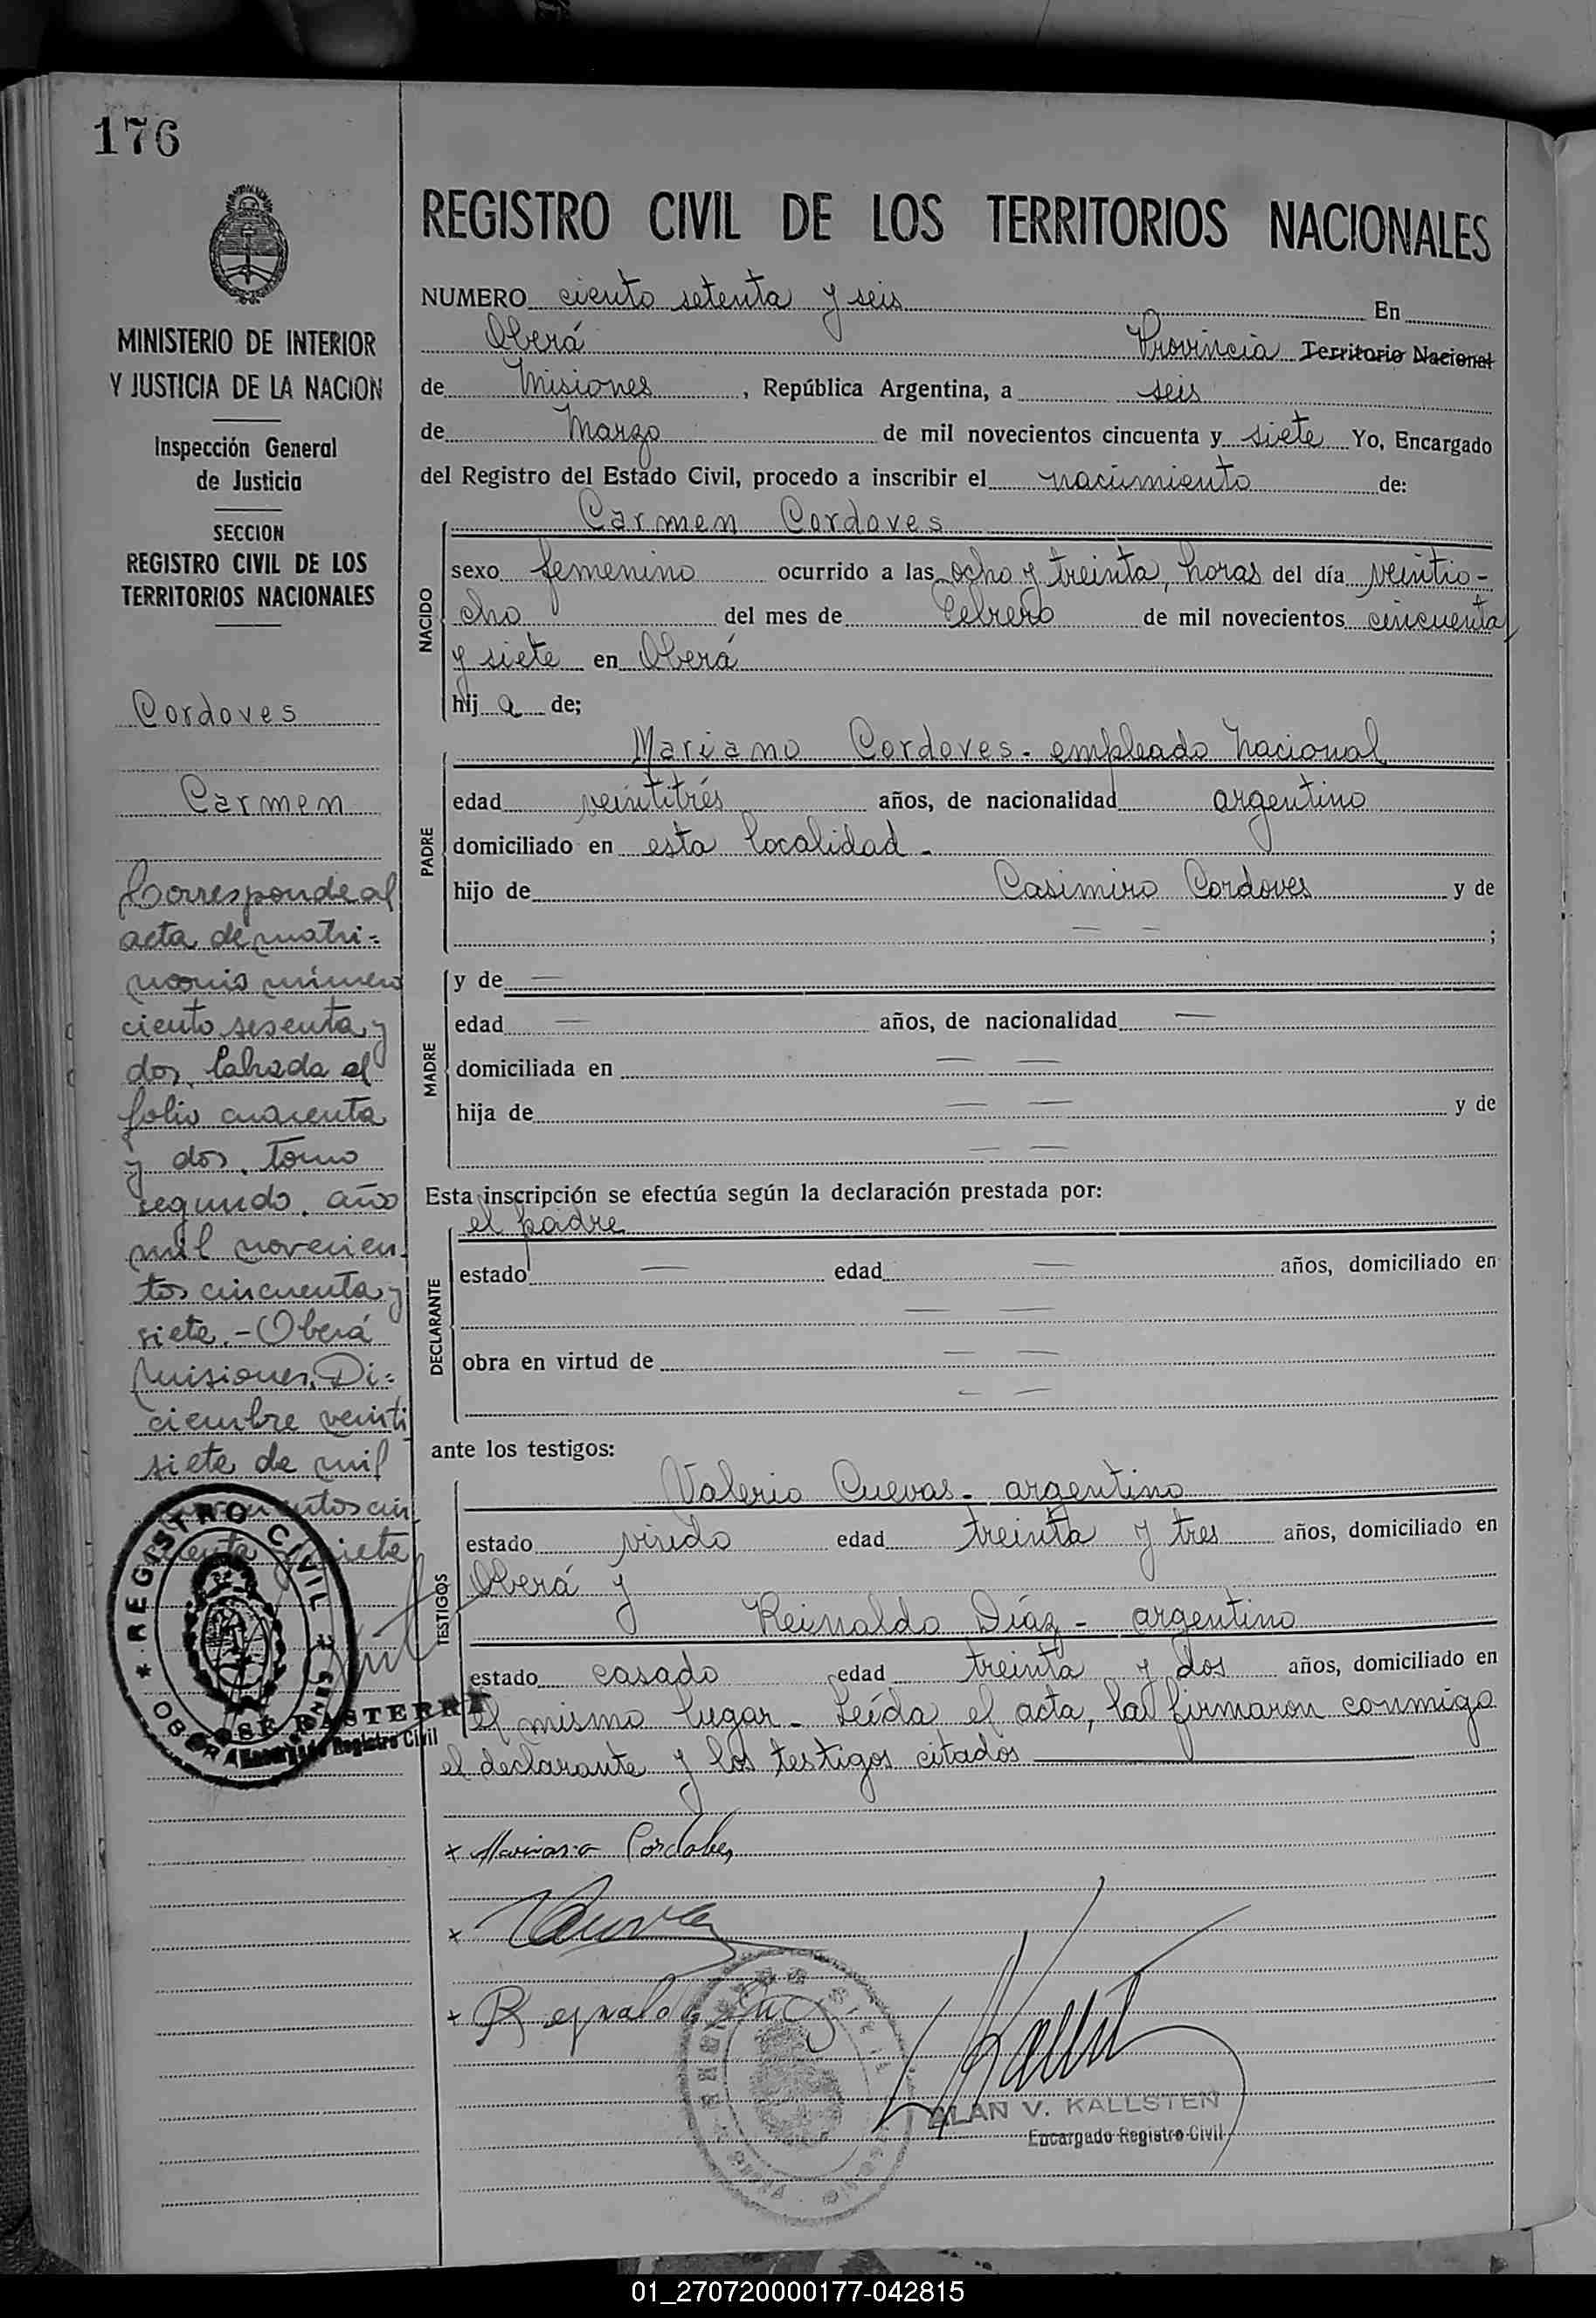 176
MINISTERIO DE INTERIOR
Y JUSTICIA DE LA NACION
Inspección General
de Justicia
SECCION
REGISTRO CIVIL DE LOS
TERRITORIOS NACIONALES
Cordoves
Carmen
Corresponde al
acta de matri=
monio número
ciento sesenta y
dos, labrada al
folio cuarenta
y dos, Tomo
segundo, año
mil novecien-
tos cincuenta y
siete.- Oberá
Misiones, Di=
ciembre veinti
siete de mil
novecientos cin
cuenta y siete
REGISTRO CIVIL
OBERA
JOSÉ BASTERRA
Encargado Registro Civil
REGISTRO CIVIL DE LOS TERRITORIOS NACIONALES
NUMERO ciento setenta y seis En
Oberá Provincia Territorio Nacional
de Misiones, República Argentina, a seis
de Marzo de mil novecientos cincuenta y siete Yo, Encargado
del Registro del Estado Civil, procedo a inscribir el nacimiento de:
NACIDO
Carmen Cordoves
sexo femenino ocurrido a las ocho y treinta, horas del día veintio-
cho del mes de Febrero de mil novecientos cincuenta
y siete en Oberá
hija de;
PADRE
Mariano Cordoves - empleado nacional
edad veintitrés años, de nacionalidad argentino
domiciliado en esta localidad -
hijo de Casimiro Cordoves y de
— — ;
MADRE
y de —
edad — años, de nacionalidad —
domiciliada en — —
hija de — — y de
— —
Esta inscripción se efectúa según la declaración prestada por:
DECLARANTE
el padre
estado — edad — años, domiciliado en
— —
obra en virtud de — —
— —
ante los testigos:
TESTIGOS
Valerio Cuevas - argentino
estado viudo edad treinta y tres años, domiciliado en
Oberá y
Reinaldo Díaz - argentino
estado casado edad treinta y dos años, domiciliado en
el mismo lugar - Leída el acta, la firmaron conmigo
el declarante y los testigos citados
x Mariano Cordobes
x
x Reynaldo Diaz
ALAN V. KALLSTEN
Encargado Registro Civil
01_270720000177-042815